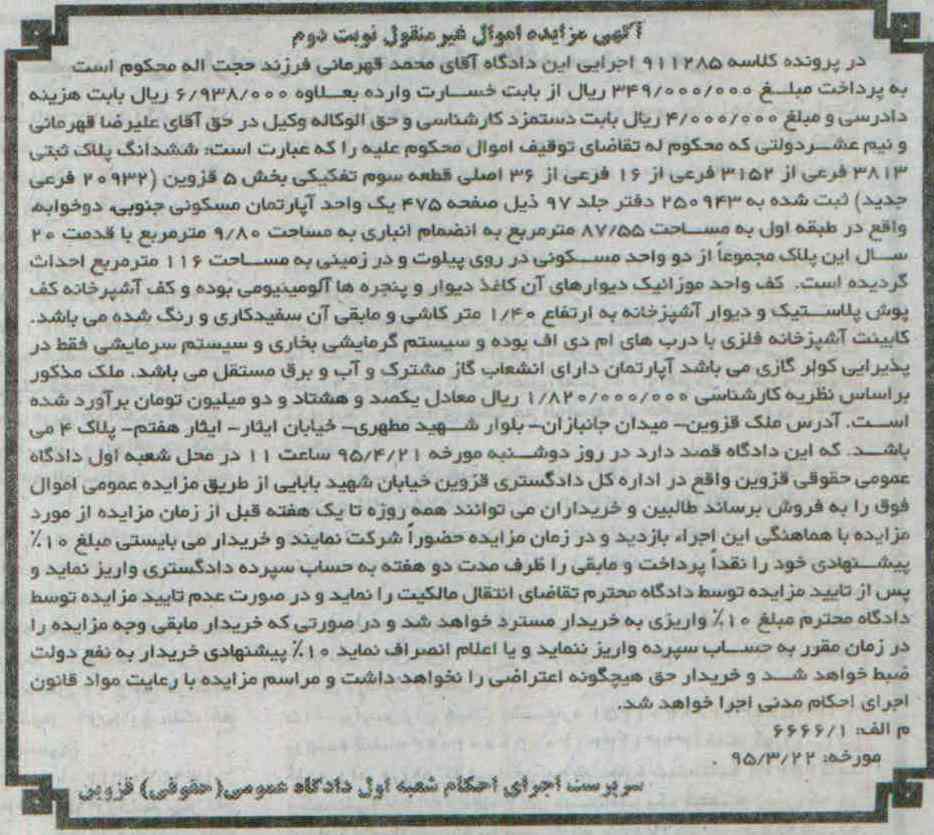 آگهی مزایده اموال غیرمنقول نوبت دوم
در پرونده کلاسه ۹۱۱۲۸۵ اجرایی این دادگاه آقای محمد قهرمانی فرزند حجت اله محکوم است
به پرداخت مبلغ ۳۴۹/۰۰۰/۰۰۰ ریال از بابت خسارت وارده بعلاوه ۶/۹۳۸/۰۰۰ ریال بابت هزینه
دادرسی و مبلغ ۴/۰۰۰/۰۰۰ ریال بابت دستمزد کارشناسی و حق الوکاله وکیل در حق آقای علیرضا قهرمانی
و نیم عشردولتی که محکوم له تقاضای توقیف اموال محکوم علیه را که عبارت است: ششدانگ پلاک ثبتی
۳۸۱۳ فرعی از ۳۱۵۲ فرعی از ۱۶ فرعی از ۳۶ اصلی قطعه سوم تفکیکی بخش ۵ قزوین (۲۰۹۳۲ فرعی
جدید) ثبت شده به ۲۵۰۹۴۳ دفتر جلد ۹۷ ذیل صفحه ۴۷۵ یک واحد آپارتمان مسکونی جنوبی، دوخوابه،
واقع در طبقه اول به مساحت ۸۷/۵۵ مترمربع به انضمام انباری به مساحت ۹/۸۰ مترمربع با قدمت ۲۰
سال این پلاک مجموعاً از دو واحد مسکونی در روی پیلوت و در زمینی به مساحت ۱۱۶ مترمربع احداث
گردیده است. کف واحد موزائیک دیوارهای آن کاغذ دیوار و پنجره ها آلومینیومی بوده و کف آشپرخانه کف
پوش پلاستیک و دیوار آشپزخانه به ارتفاع ۱/۴۰ متر کاشی و مابقی آن سفیدکاری و رنگ شده می باشد.
کابینت آشپزخانه فلزی با درب های ام دی اف بوده و سیستم گرمایشی بخاری و سیستم سرمایشی فقط در
پذیرایی کولر گازی می باشد آپارتمان دارای انشعاب گاز مشترک و آب و برق مستقل می باشد. ملک مذکور
براساس نظریه کارشناسی ۱/۸۲۰/۰۰۰/۰۰۰ ریال معادل یکصد و هشتاد و دو میلیون تومان برآورد شده
است. آدرس ملک قزوین- میدان جانبازان- بلوار شهید مطهری- خیابان ایثار- ایثار هفتم- پلاک ۴ می
باشد. که این دادگاه قصد دارد در روز دوشنبه مورخه ۹۵/۴/۲۱ ساعت ۱۱ در محل شعبه اول دادگاه
عمومی حقوقی قزوین واقع در اداره کل دادگستری قزوین خیابان شهید بابایی از طریق مزایده عمومی اموال
فوق را به فروش برساند طالبین و خریداران می توانند همه روزه تا یک هفته قبل از زمان مزایده از مورد
مزایده با هماهنگی این اجراء بازدید و در زمان مزایده حضوراً شرکت نمایند و خریدار می بایستی مبلغ ۱۰٪
پیشنهادی خود را نقداً پرداخت و مابقی را ظرف مدت دو هفته به حساب سپرده دادگستری واریز نماید و
پس از تایید مزایده توسط دادگاه محترم تقاضای انتقال مالکیت را نماید و در صورت عدم تایید مزایده توسط
دادگاه محترم مبلغ ۱۰٪ واریزی به خریدار مسترد خواهد شد و در صورتی که خریدار مابقی وجه مزایده را
در زمان مقرر به حساب سپرده واریز ننماید و یا اعلام انصراف نماید ۱۰٪ پیشنهادی خریدار به نفع دولت
ضبط خواهد شد و خریدار حق هیچگونه اعتراضی را نخواهد داشت و مراسم مزایده با رعایت مواد قانون
اجرای احکام مدنی اجرا خواهد شد.
م الف: ۶۶۶۶/۱
مورخه: ۹۵/۳/۲۲
سرپرست اجرای احکام شعبه اول دادگاه عمومی(حقوقی) قزوین